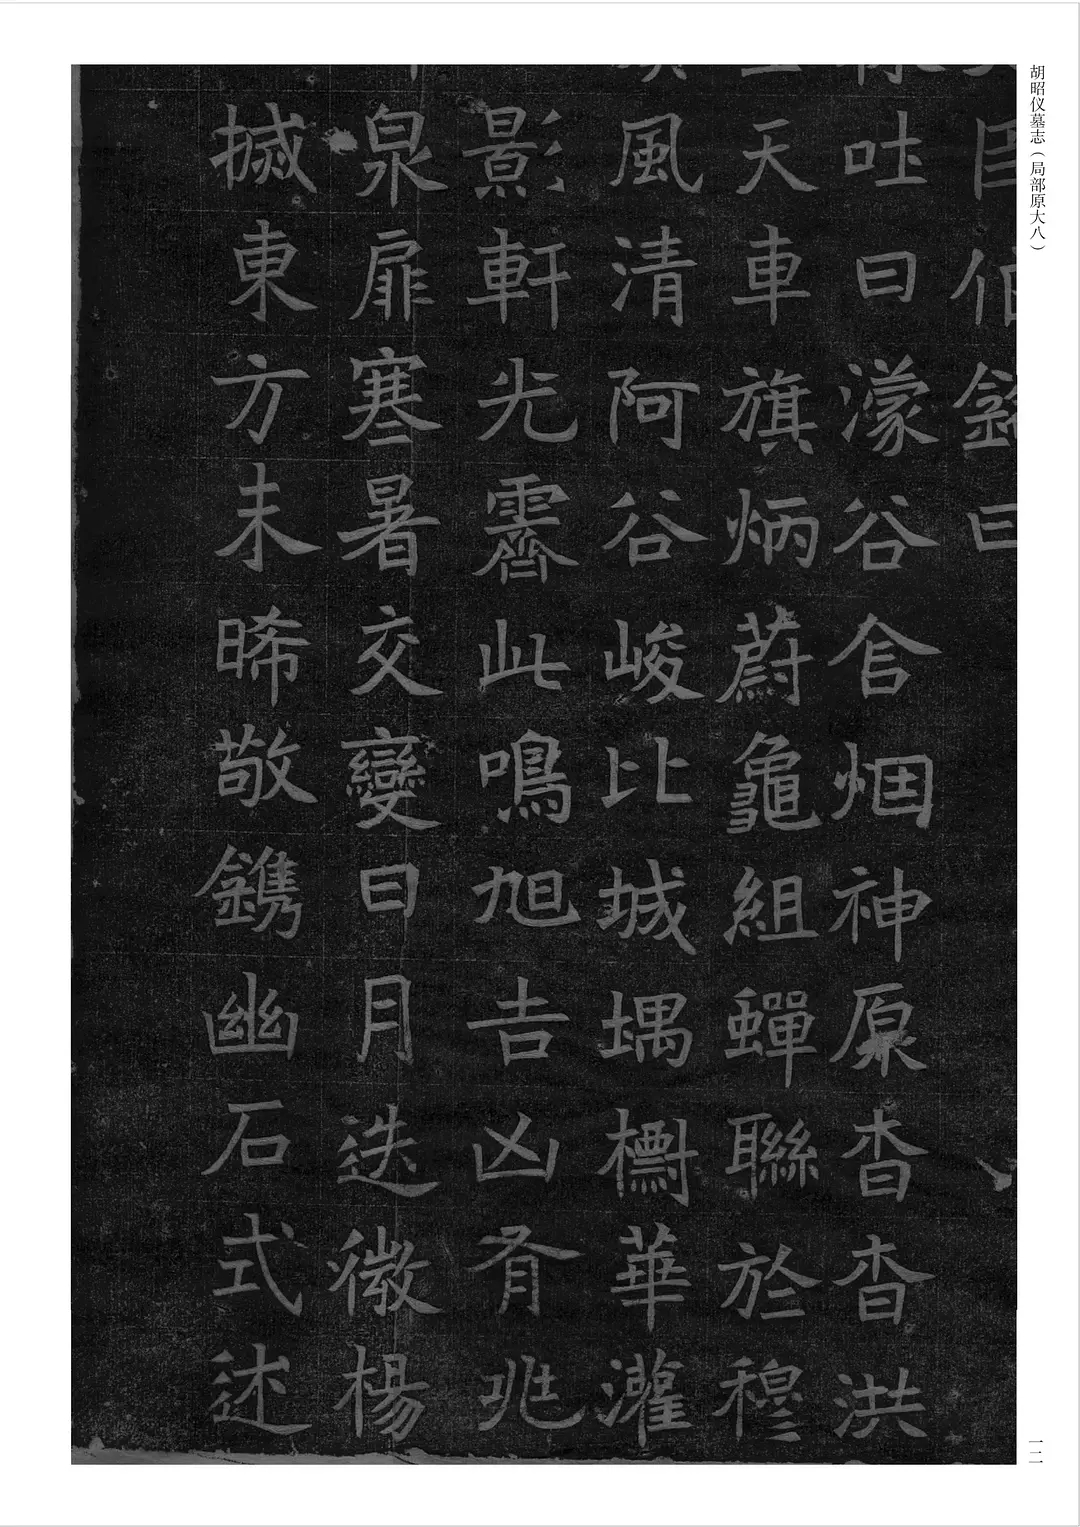 胡昭仪墓志（局部原大八）
銘曰
吐曰濛谷含烟神原杳杳洪
天車旗炳蔚龜組蟬聯於穆
風清阿谷峻比城堣櫥華灌
影軒光霽此鳴旭吉凶有兆
泉扉寒暑交變日月迭微楊
摵東方未晞敬鐫幽石式述
一二